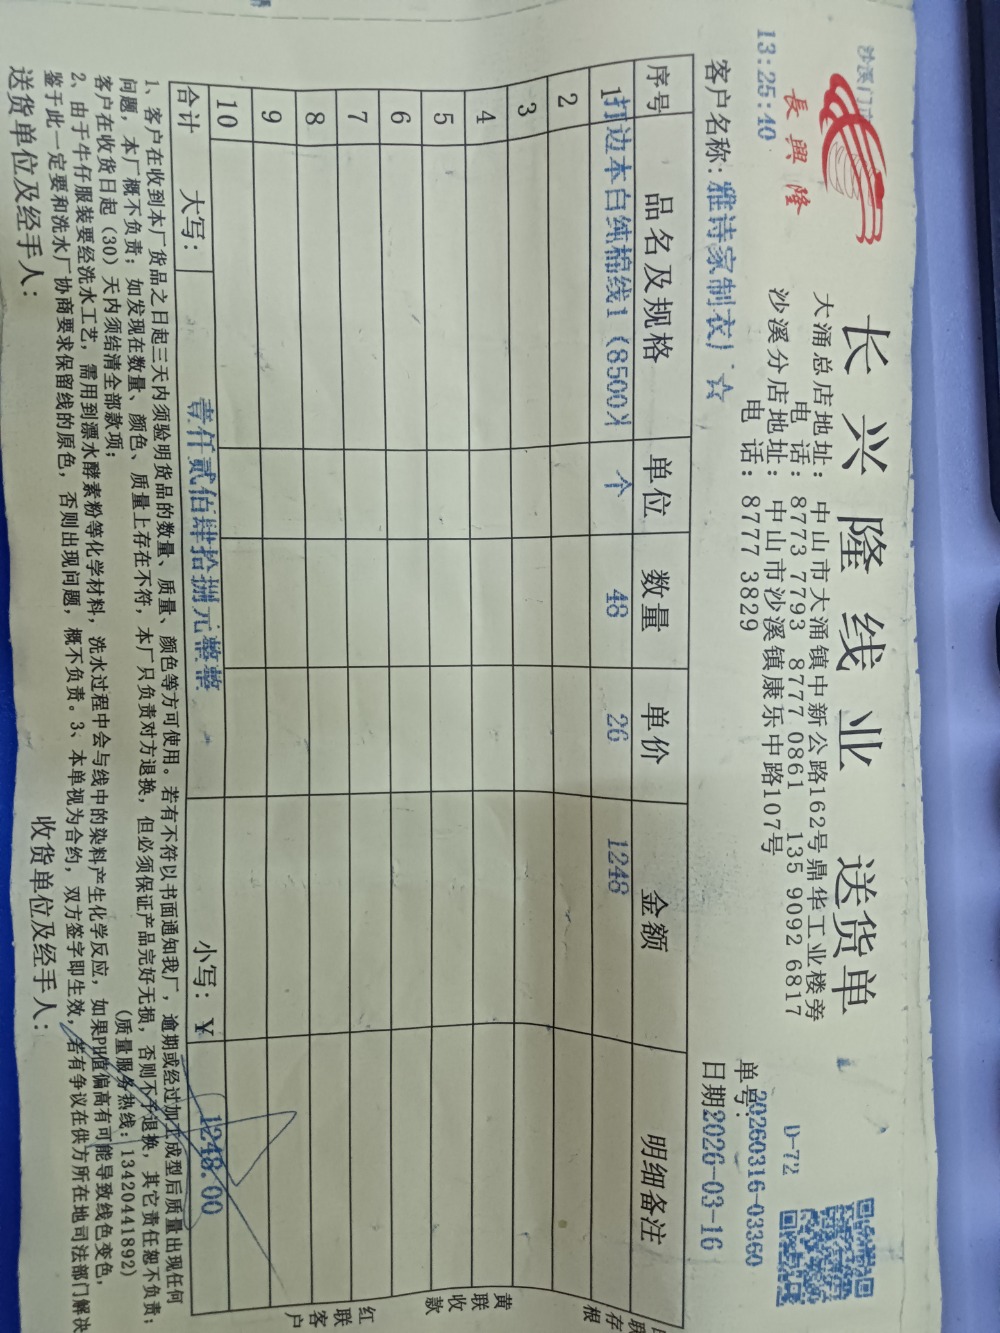 沙溪门
13:25:40
長興隆
长兴隆线业 送货单
大涌总店地址: 中山市大涌镇中新公路162号鼎华工业楼旁
电 话: 8773 7793 8777 0861 135 9092 6817
沙溪分店地址: 中山市沙溪镇康乐中路107号
电 话: 8777 3829
D-72
单号:20260316-03360
客户名称: 雅诗家制衣厂☆
日期2026-03-16
序号 品名及规格 单位 数量 单价 金额 明细备注
1 打边本白纯棉线1(8500 个 48 26 1248
2
3
4
5
6
7
8
9
10
合计 大写: 壹仟贰佰肆拾捌元整整 小写: ¥ 1248.00
存根
黄联收款
红联客户
1、客户在收到本厂货品之日起三天内须验明货品的数量、质量、颜色等方可使用。若有不符以书面通知我厂,逾期或经过加工成型后质量出现任何
问题,本厂概不负责;如发现在数量、颜色、质量上存在不符,本厂只负责对方退换,但必须保证产品完好无损,否则不予退换,其它责任恕不负责;
客户在收货日起(30)天内须结清全部款项; (质量服务热线: 13420441892)
2、由于牛仔服装要经洗水工艺,需用到漂水酵素粉等化学材料,洗水过程中会与线中的染料产生化学反应,如果PH值偏高有可能导致线色变色,
鉴于此一定要和洗水厂协商要求保留线的原色,否则出现问题,概不负责。3、本单视为合约,双方签字即生效,若有争议在供方所在地司法部门解决
送货单位及经手人: 收货单位及经手人: